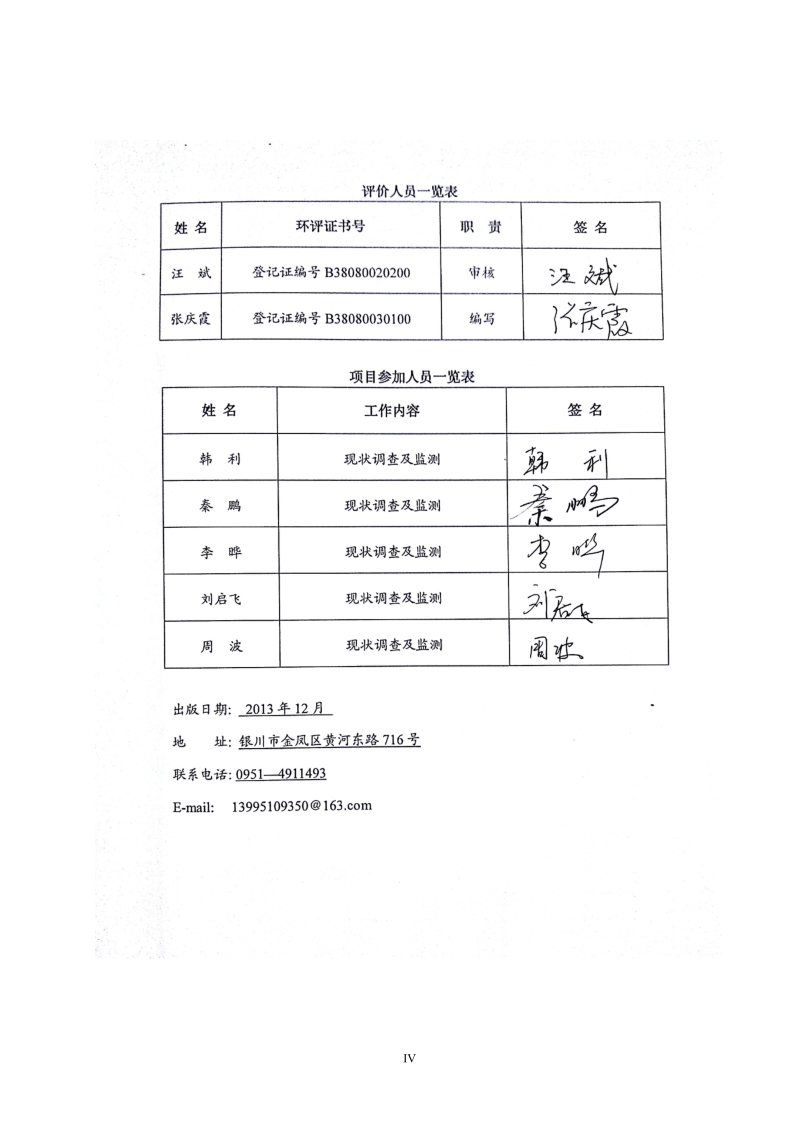 评价人员一览表
姓 名 环评证书号 职 责 签 名
汪 斌 登记证编号 B38080020200 审核 汪斌
张庆霞 登记证编号 B38080030100 编写 张庆霞
项目参加人员一览表
姓 名 工作内容 签 名
韩 利 现状调查及监测 韩利
秦 鹏 现状调查及监测 秦鹏
李 晔 现状调查及监测 李晔
刘启飞 现状调查及监测 刘启飞
周 波 现状调查及监测 周波
出版日期: 2013 年 12 月
地 址: 银川市金凤区黄河东路 716 号
联系电话: 0951—4911493
E-mail: 13995109350@163.com
IV